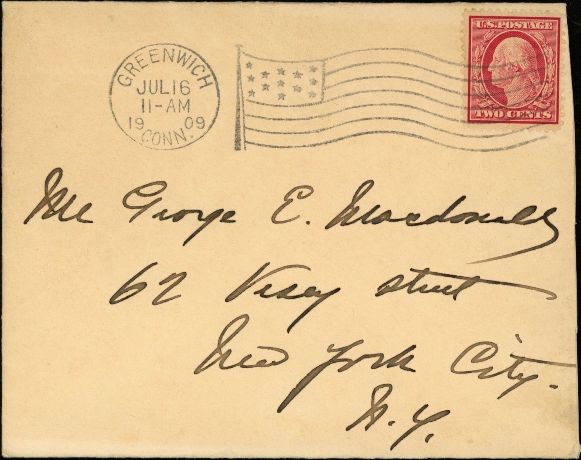 U.S. POSTAGE
TWO CENTS
GREENWICH
JUL 16
11-AM
1909
CONN.
Mr George E. Macdonald
62 Vesey street
New York City.
N.Y.